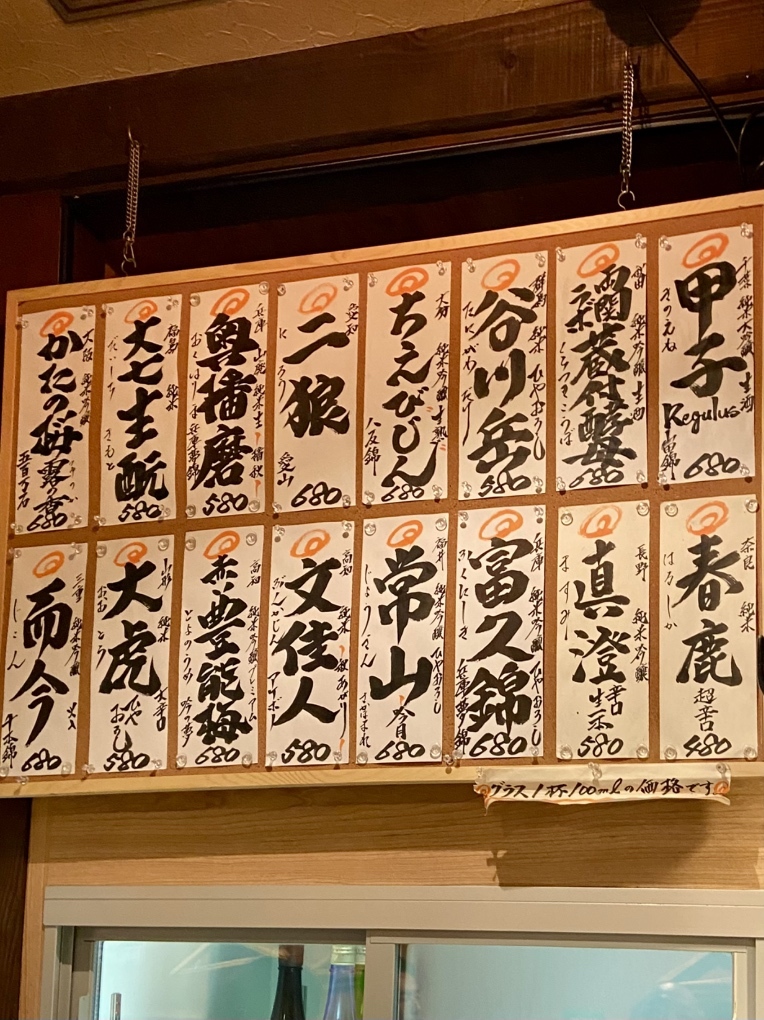 甲子
きのえね
千葉 純米大吟醸 生酒
Regulus
680
蔵付酵母
純米吟醸 生酒
680
谷川岳
たにがわだけ
群馬 純米 ひやおろし
580
ちえびじん
大分 純米吟醸
八反錦
680
二狼
愛知
にろう
愛山
680
奥播磨
兵庫 山廃純米 生
おくはりま
兵庫夢錦
580
大七生酛
福島 純米
だいしち きもと
580
かたの桜
大阪 純米吟醸
露の香
五百万石
680
春鹿
奈良 純米
はるしか
超辛口
480
真澄
長野 純米吟醸
ますみ
辛口
生酛
580
富久錦
兵庫 純米吟醸 ひやおろし
ふくにしき
兵庫夢錦
680
常山
福井 純米吟醸 ひやおろし
じょうざん
680
文佳人
高知 純米
ぶんかじん
580
赤 豊能梅
高知 純米吟醸 プレミアム
とよのうめ
吟の夢
580
大虎
山形
おおとら
大辛口
ひやおろし
580
而今
三重 純米吟醸
じこん
千本錦
680
グラス1杯100mlの価格です